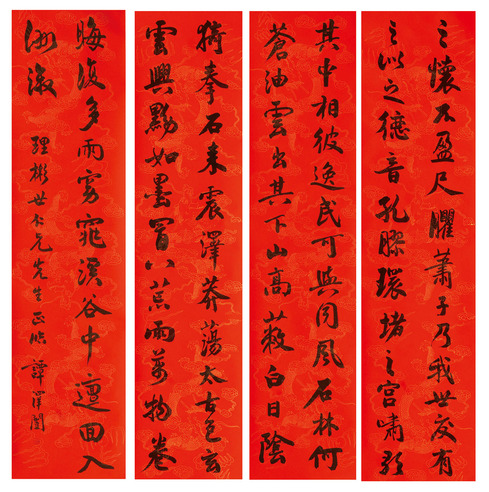 之懷不盈尺臞蕭子乃我世交有
之以之德音孔膠環堵之宮嘯歌
其中相彼逸民可與同風石林何
蒼油雲出其下山高蔽白日陰
猗拳石來震澤莽蕩太古色玄
雲興黟如墨冒以荒雨萬物卷
晦復多雨窈窕溪谷中邅回入
洲溆
理彬世大兄先生正临 譚澤闓